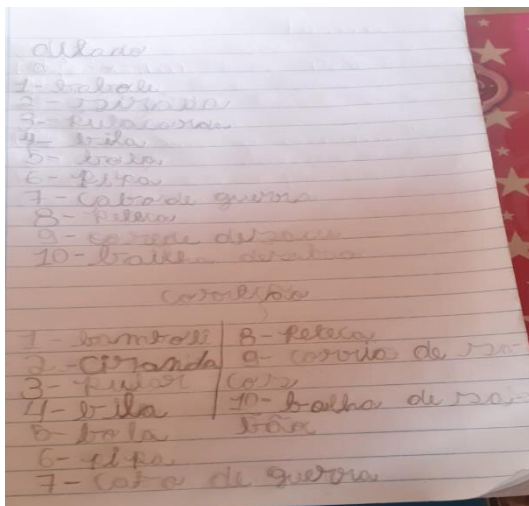 ditado
1- baboli
2-
3- pulacorda
4- bila
5- bola
6- pipa
7- cabo de guerra
8- peteca
9-
10-
correção
1- bamboli
2- ciranda
3- pular
4- bila
5- bola
6- pipa
7- cabo de guerra
8- peteca
9- corrida de sa-
cos
10- bolha de sa-
bão